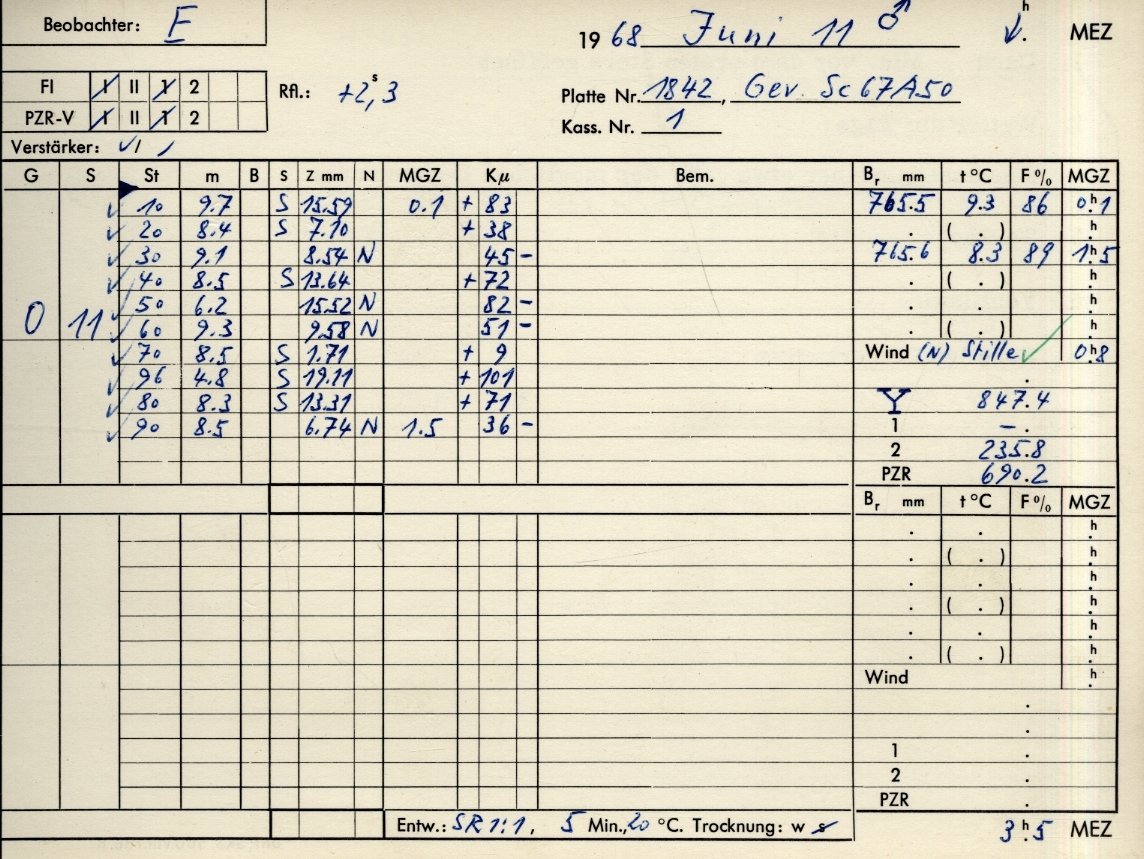 Beobachter: E
1968 Juni 11 ♂ h . MEZ
FI I II 1 2
PZR-V I II 1 2
Rfl.: +2,s3
Platte Nr. 1842, Gev. Sc67A50
Kass. Nr. 1
Verstärker: √ /
G S St m B S Z mm N MGZ Kμ Bem. Br mm t °C F % MGZ
10 9.7 S 15.59 0.1 + 83 765.5 9.3 86 0h.1
20 8.4 S 7.10 + 38 . ( . ) h
30 9.1 8.54 N 45 - 765.6 8.3 89 1h.5
40 8.5 S 13.64 + 72 . ( . ) h
50 6.2 15.52 N 82 - . . h
0 11 60 9.3 9.58 N 51 - . ( . ) h
70 8.5 S 1.71 + 9 Wind (N) Stille 0h.8
96 4.8 S 19.11 + 101 .
80 8.3 S 13.31 + 71 Y 847.4
90 8.5 6.74 N 1.5 36 - 1 – .
2 235.8
PZR 690.2
Br mm t °C F % MGZ
. . h
. ( . ) h
. . h
. ( . ) h
. . h
. ( . ) h
Wind h
.
.
1 .
2 .
PZR .
Entw.: SR 1:1, 5 Min., 20 °C. Trocknung: w s
3h.5 MEZ